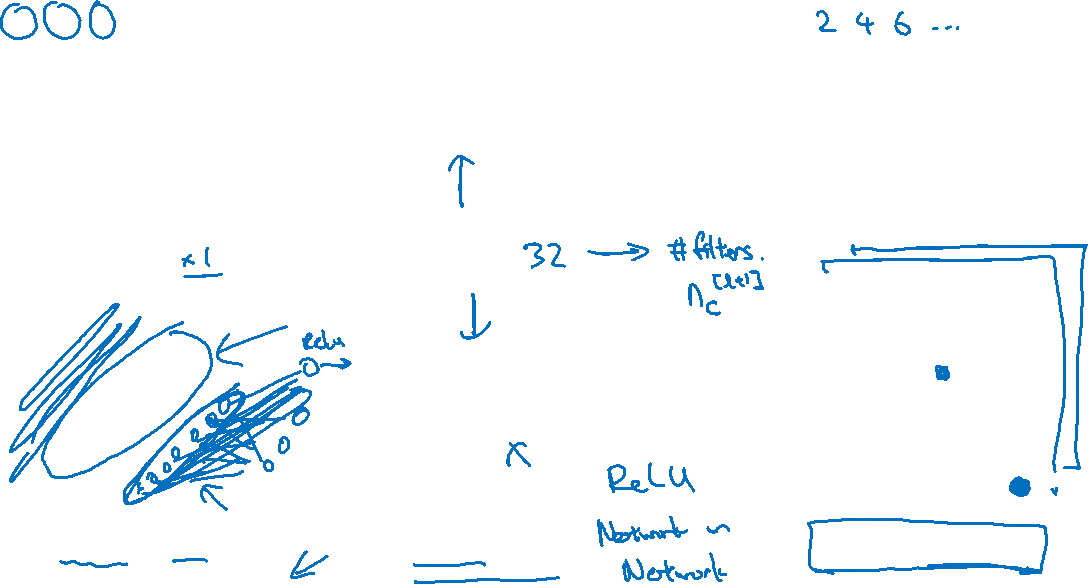 2 4 6 ...
32 → # filters.
n_c^[l+1]
x 1
ReLU
x
ReLU
Network in
Network